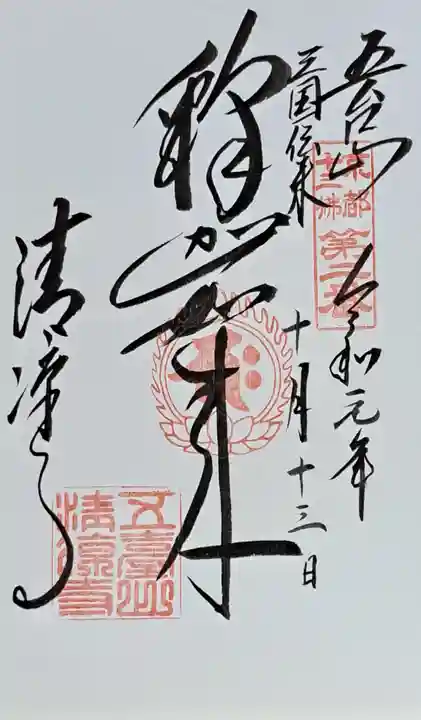 五台山
令和元年
三国伝来
十月十三日
釈迦如来
清凉寺
京都
十三佛
第二番
五臺山
清凉寺